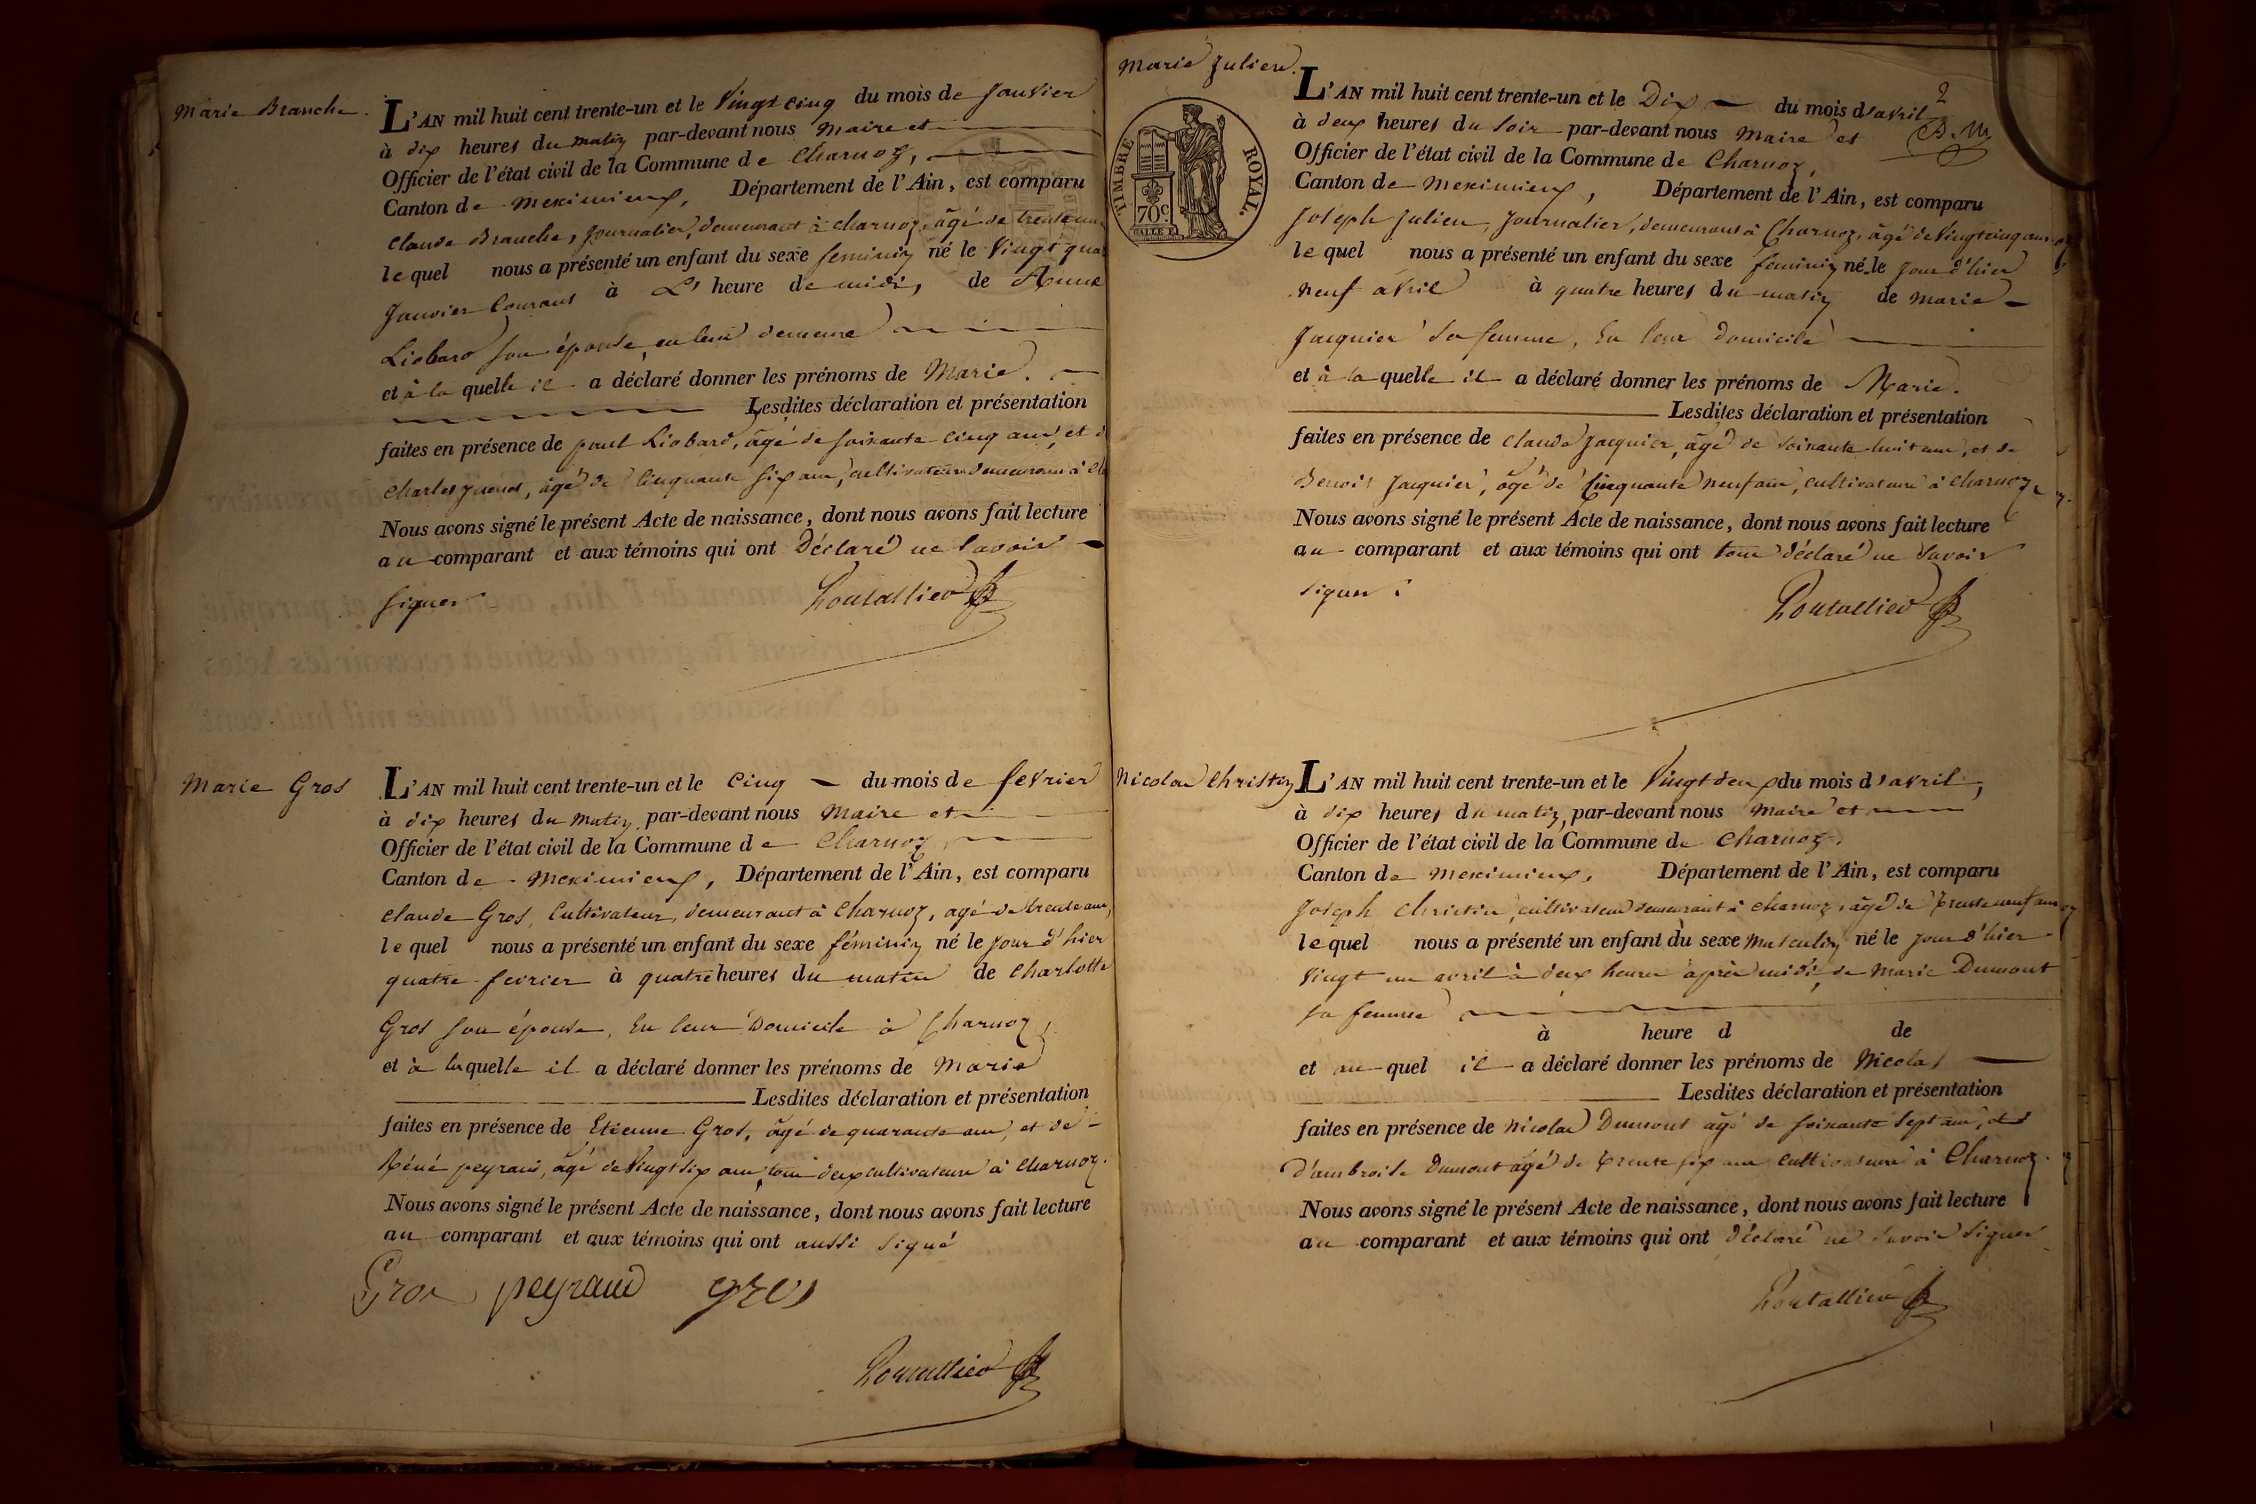 Marie Branche.
L'AN mil huit cent trente-un et le Vingt cinq du mois de Janvier
à dix heures du matin par-devant nous Maire et
Officier de l'état civil de la Commune de Charnoz,
Canton de Meximieux, Département de l'Ain, est comparu
Claude Branche, Journalier, demeurant à Charnoz, âgé de trente
lequel nous a présenté un enfant du sexe feminin né le Vingt
Janvier Courant à L' heure de midi, de Anne
Liobard son épouse, en leur demeure
et à la quelle il a déclaré donner les prénoms de Marie.
Lesdites déclaration et présentation
faites en présence de paul Liobard, âgé de soixante cinq ans, et
Charles, âgé de Cinquante six ans, cultivateurs demeurant à
Nous avons signé le présent Acte de naissance, dont nous avons fait lecture
au comparant et aux témoins qui ont Déclaré ne savoir
signer
Poutallied
Marie Gros
L'AN mil huit cent trente-un et le Cinq du mois de fevrier
à dix heures du matin par-devant nous Maire et
Officier de l'état civil de la Commune de Charnoz
Canton de Meximieux, Département de l'Ain, est comparu
Claude Gros, Cultivateur, demeurant à Charnoz, agé de trente ans,
lequel nous a présenté un enfant du sexe féminin né le jour d'hier
quatre fevrier à quatre heures du matin de Charlotte
Gros son épouse, En leur Domicile à Charnoz,
et à la quelle il a déclaré donner les prénoms de Marie
Lesdites déclaration et présentation
faites en présence de Etienne Gros, âgé de quarante ans, et de
Réné peyraud, âgé de Vingt six ans, tous deux cultivateurs à Charnoz.
Nous avons signé le présent Acte de naissance, dont nous avons fait lecture
au comparant et aux témoins qui ont aussi signé
Gros peyraud gros
Poutallied
Marie Julien.
TIMBRE ROYAL.
70c.
L'AN mil huit cent trente-un et le Dix du mois d'avril
2
à deux heures du soir par-devant nous Maire et
Officier de l'état civil de la Commune de Charnoz,
Canton de Meximieux, Département de l'Ain, est comparu
Joseph Julien, Journalier, demeurant à Charnoz, âgé de Vingt cinq ans
lequel nous a présenté un enfant du sexe féminin né le jour d'hier
neuf avril à quatre heures du matin de Marie
Jacquier sa femme, En leur domicile
et à la quelle il a déclaré donner les prénoms de Marie.
Lesdites déclaration et présentation
faites en présence de Claude Jacquier, âgé de soixante huit ans, et de
Benoit Jacquier, âgé de Cinquante neuf ans, cultivateurs à Charnoz
Nous avons signé le présent Acte de naissance, dont nous avons fait lecture
au comparant et aux témoins qui ont tous déclaré ne savoir
signer.
Poutallied
Nicolas Christin
L'AN mil huit cent trente-un et le Vingt deux du mois d'avril,
à dix heures du matin, par-devant nous Maire et
Officier de l'état civil de la Commune de Charnoz.
Canton de Meximieux, Département de l'Ain, est comparu
Joseph Christin, cultivateur demeurant à Charnoz, âgé de trente neuf ans
lequel nous a présenté un enfant du sexe masculin né le jour d'hier
Vingt un avril à deux heures après midi, de Marie Dumont
sa femme
à heure d de
et au quel il a déclaré donner les prénoms de Nicolas
Lesdites déclaration et présentation
faites en présence de Nicolas Dumont agé de soixante sept ans, et
D'ambroise Dumont âgé de trente six ans Cultivateurs à Charnoz.
Nous avons signé le présent Acte de naissance, dont nous avons fait lecture
au comparant et aux témoins qui ont déclaré ne savoir signer
Poutallied